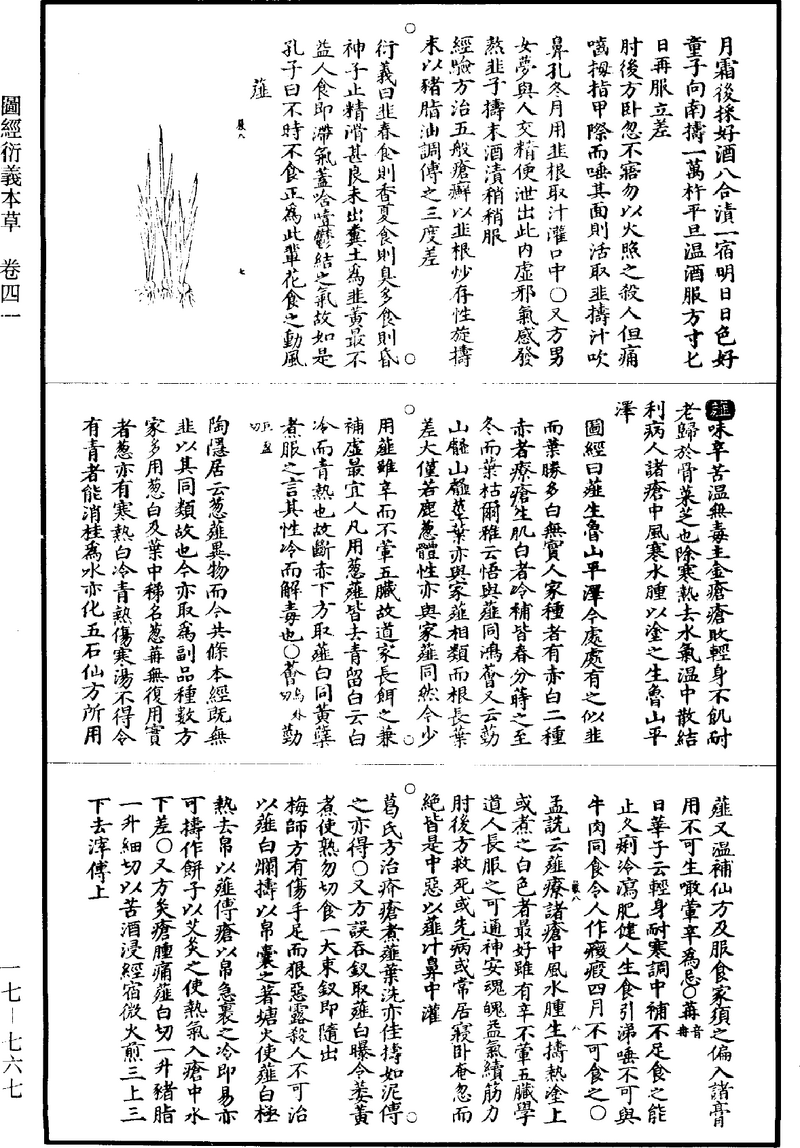 圖經衍義本草　卷四一
月霜後採好酒八合漬一宿明日日色好
童子向南擣一萬杵平旦溫酒服方寸匕
日再服立差
肘後方卧忽不寤勿以火照之殺人但痛
嚙拇指甲際而唾其面則活取韭擣汁吹
鼻孔冬月用韭根取汁灌口中○又方男
女夢與人交精便泄出此內虛邪氣感發
熬韭子擣末酒漬稍稍服
經驗方治五般瘡癬以韭根炒存性旋擣
末以豬脂油調傅之三度差
衍義曰韭春食則香夏食則臭多食則昏
神子止精滑甚良未出糞土為韭黃最不
益人食即滯氣蓋含噎鬱結之氣故如是
孔子曰不時不食正為此輩花食之動風
薤
薤味辛苦溫無毒主金瘡瘡敗輕身不飢耐
老歸於骨菜芝也除寒熱去水氣溫中散結
利病人諸瘡中風寒水腫以塗之生魯山平
澤
圖經曰薤生魯山平澤今處處有之似韭
而葉勝多白無實人家種者有赤白二種
赤者療瘡生肌白者冷補皆春分蒔之至
冬而葉枯爾雅云䪥與薤同鴻薈又云葝
山䪥山䪥莖葉亦與家薤相類而根長葉
差大僅若鹿蔥體性亦與家薤同然今少
用薤雖辛而不葷五臟故道家長餌之兼
補虛最宜人凡用蔥薤皆去青留白云白
冷而青熱也故斷赤下方取薤白同黃蘗
煮服之言其性冷而解毒也○薈烏外切葝
巨盈切
陶隱居云蔥薤異物而今共條本經既無
韭以其同類故也今亦取為副品種數方
家多用蔥白及葉中稀名蔥苒無復用實
者蔥亦有寒熱白冷青熱傷寒湯不得令
有青者能消桂為水亦化五石仙方所用
薤又溫補仙方及服食家須之偏入諸膏
用不可生噉葷辛為忌○苒音冉
日華子云輕身耐寒調中補不足食之能
止久痢冷瀉肥健人生食引涕唾不可與
牛肉同食令人作癥瘕四月不可食之○
孟詵云薤療諸瘡中風水腫生擣熱塗上
或煮之白色者最好雖有辛不葷五臟學
道人長服之可通神安魂魄益氣續筋力
肘後方救死或先病或常居寢卧奄忽而
絕皆是中惡以薤汁鼻中灌
葛氏方治疥瘡煮薤葉洗亦佳擣如泥傅
之亦得○又方誤吞釵取薤白曝令萎黃
煮使熟勿切食一大束釵即隨出
梅師方有傷手足而犯惡露殺人不可治
以薤白爛擣以帛囊之著煻火使薤白極
熱去帛以薤傅瘡以帛急裹之冷即易亦
可擣作餅子以艾灸之使熱氣入瘡中水
下差○又方灸瘡腫痛薤白切一升豬脂
一升細切以苦酒浸經宿微火煎三上三
下去滓傅上
一七—七六七